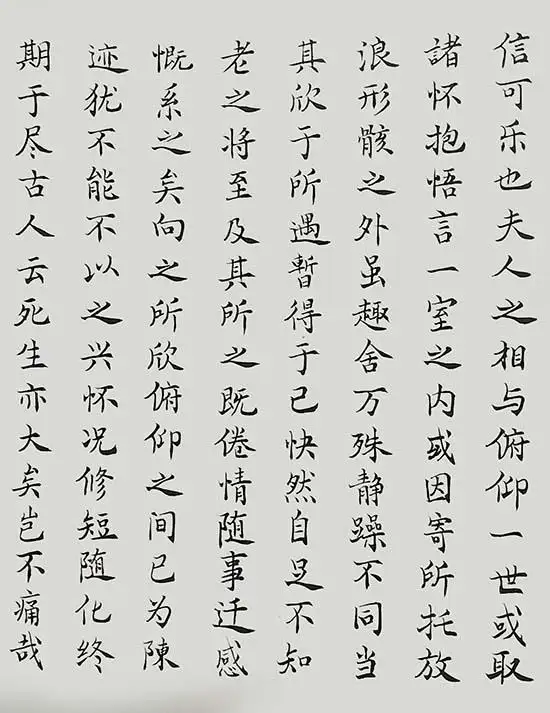 信可乐也夫人之相与俯仰一世或取
諸怀抱悟言一室之内或因寄所托放
浪形骸之外虽趣舍万殊静躁不同当
其欣于所遇暫得于己快然自足不知
老之将至及其所之既倦情随事迁感
慨系之矣向之所欣俯仰之间已为陳
迹犹不能不以之兴怀况修短随化终
期于尽古人云死生亦大矣岂不痛哉